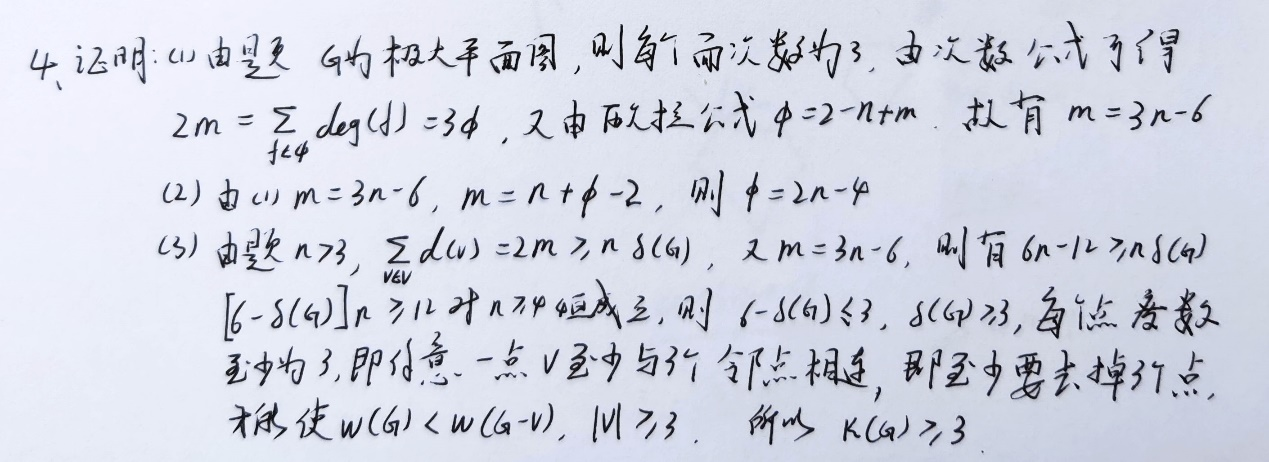 4、证明:(1)由题意 G为极大平面图,则每个面次数为3,由次数公式可得
2m = Σ_{f∈φ} deg(f) = 3φ,又由欧拉公式 φ=2-n+m. 故有 m=3n-6
(2) 由(1) m=3n-6, m=n+φ-2, 则 φ=2n-4
(3) 由题意 n>3, Σ_{v∈V} d(v) =2m ≥ n δ(G), 又 m=3n-6, 则有 6n-12 ≥ nδ(G)
[6-δ(G)]n ≥ 12 对 n≥4 恒成立,则 6-δ(G) ≤ 3, δ(G) ≥ 3, 每个点度数
至少为 3,即任意一点 V 至少与3个邻点相连,即至少要去掉3个点,
才能使 w(G) < w(G-V), |V| ≥ 3. 所以 κ(G) ≥ 3